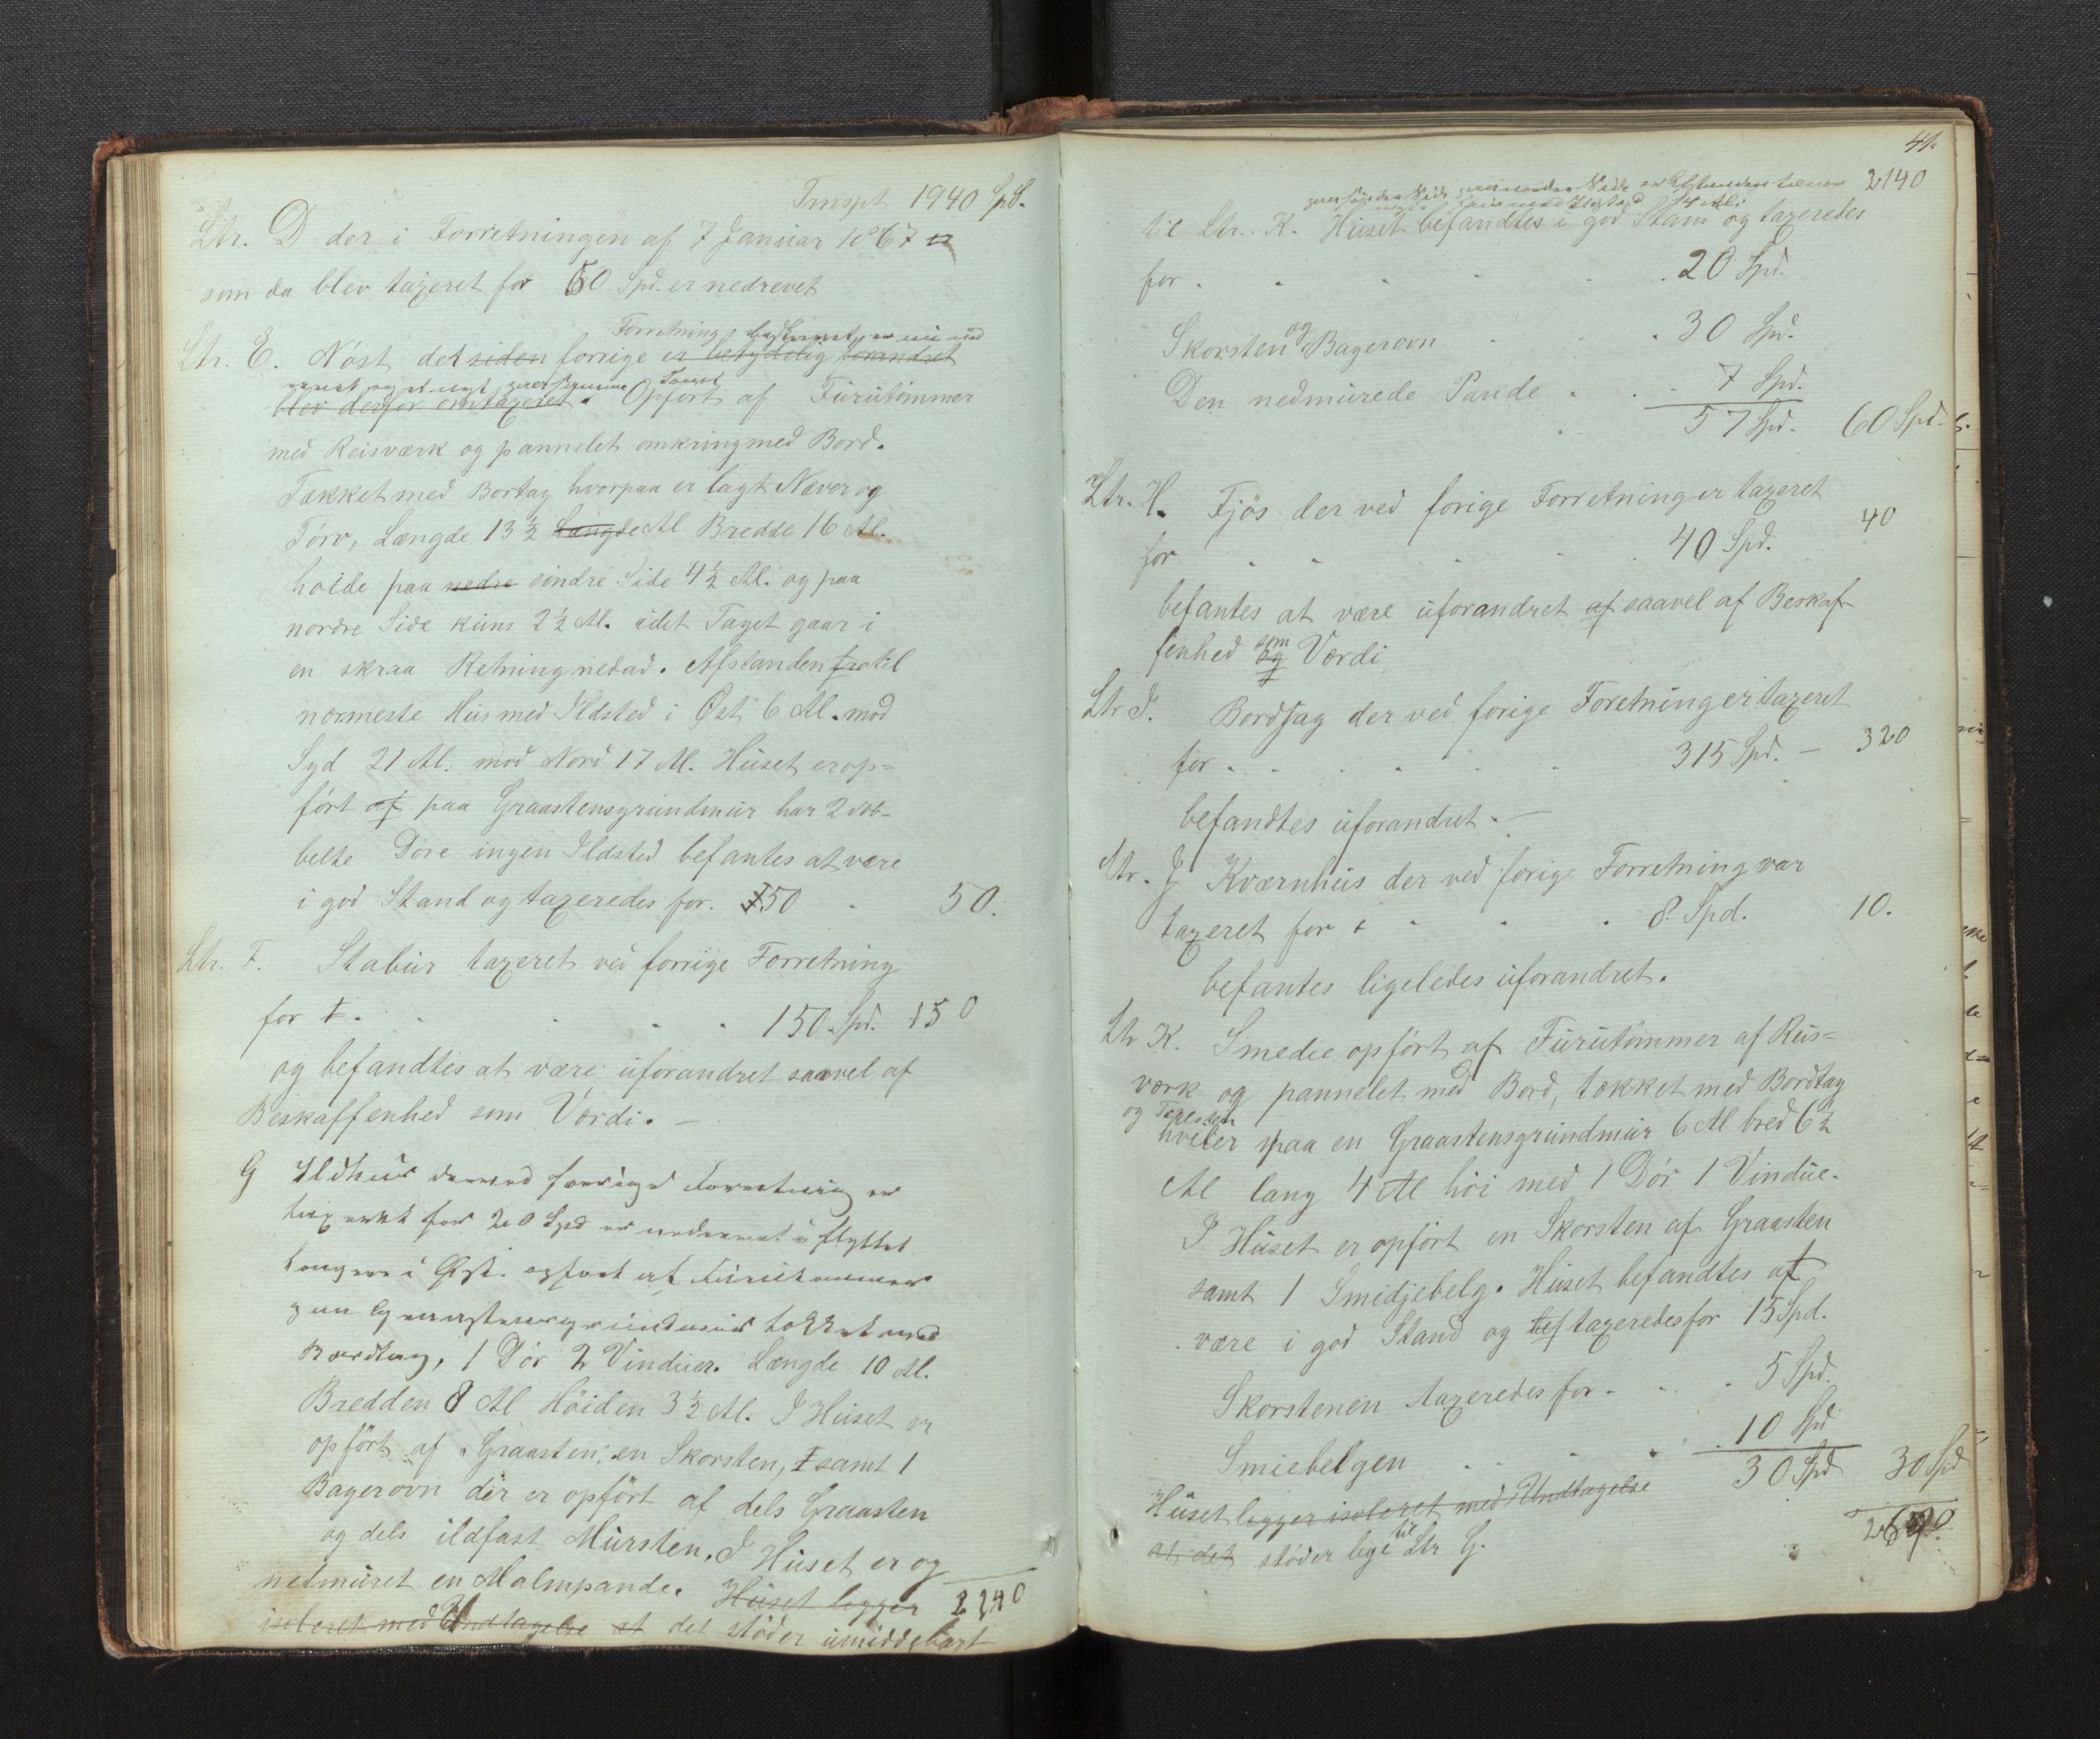 Trnspt 1940 Spd.
Ltr. D der i Forretningen af 7 Januar 1867 er
som da blev taxeret for 60 Spd. er nedrevet
Forretning beskrevet, er nu ned
Ltr. E. Nøst det siden forrige er betydelig forandret
revet og et nyt paa samme Tomt
blev derfor omtaxeret. Opført af Furutømmer
med Reisværk og pannelet omkring med Bord.
Tækket med Bortag hvorpaa er lagt Næver og
Törv, Længde 13 1/2 Længde Al Bredde 16 Al.
hoide paa nedre söndre Side 4 1/2 Al. og paa
nordre Side kuns 2 1/2 Al. idet Taget gaar i
en skraa Retning nedad. Afstanden fra til
nærmeste Hus med Ildsted i Øst 6 Al. mod
Syd 21 Al. mod Nord 17 Al. Huset er op=
ført af paa Graastensgrundmur har 2 dob-
belte Döre ingen Ildsted befantes at være
i god Stand og taxeredes for. 50 50.
Ltr. F. Stabur taxeret ved forrige Forretning
for . . . . 150 Spd. 150
og befandtes at være uforandret saavel af
Beskaffenhed som Værdi. —
G Ildhus der ved forrige Forretning er
taxeret for 20 Spd er nedrevet i flyttet
længere i Øst. opført af Furutømmer
paa Graastensgrundmur tækket med
Bordtag, 1 Dör 2 Vinduer. Længde 10 Al.
Bredden 8 Al Höiden 3 1/2 Al. I Huset er
opført af Graasten, en Skorsten, samt 1
Bagerovn der er opført af dels Graasten
og dels ildfast Mursten. I Huset er og
nedmuret en Malmpande. Huset legger 2140
isoleret med Undtagelse at det stöder umiddelbart
41.
paa söndre Side paa nordre Side er Afstanden
2140
til Ltr. K. Huset befandtes i god Stand og taxeredes
for . . . . 20 Spd.
Skorsten og Bagerovn . . 30 Spd.
Den nedmurede Pande . . 7 Spd.
57 Spd. 60 Spd.
Ltr. H. Fjös der ved forige Forretning er taxeret
for . . . . 40 Spd. 40
befantes at være uforandret af saavel af Beskaf-
fenhed og som Værdi
Ltr I. Bordsag der ved forige Foretning er taxeret
for . . . . 315 Spd. — 320
befandtes uforandret. —
Ltr. J Kværnhus der ved forige Forretning var
taxeret for . . . 8 Spd. 10.
befantes ligeledes uforandret.
Ltr K. Smedie opført af Furutömmer af Reis=
værk og pannelet med Bord, tækket med Bordtag
og Tagsten
hviler paa en Graastensgrundmur 6 Al bred 6 1/2
Al lang 4 Al höi med 1 Dör 1 Vindue.
I Huset er opført en Skorsten af Graasten
samt 1 Smidjebelg. Huset befandtes at
være i god Stand og bef taxeredes for 15 Spd.
Skorstenen taxeredes for . . . 5 Spd.
Smiebelgen . . . 10 Spd
30 Spd 30 Spd
Huset legger isoleret med Undtagelse
at det stöder lige til Ltr G.